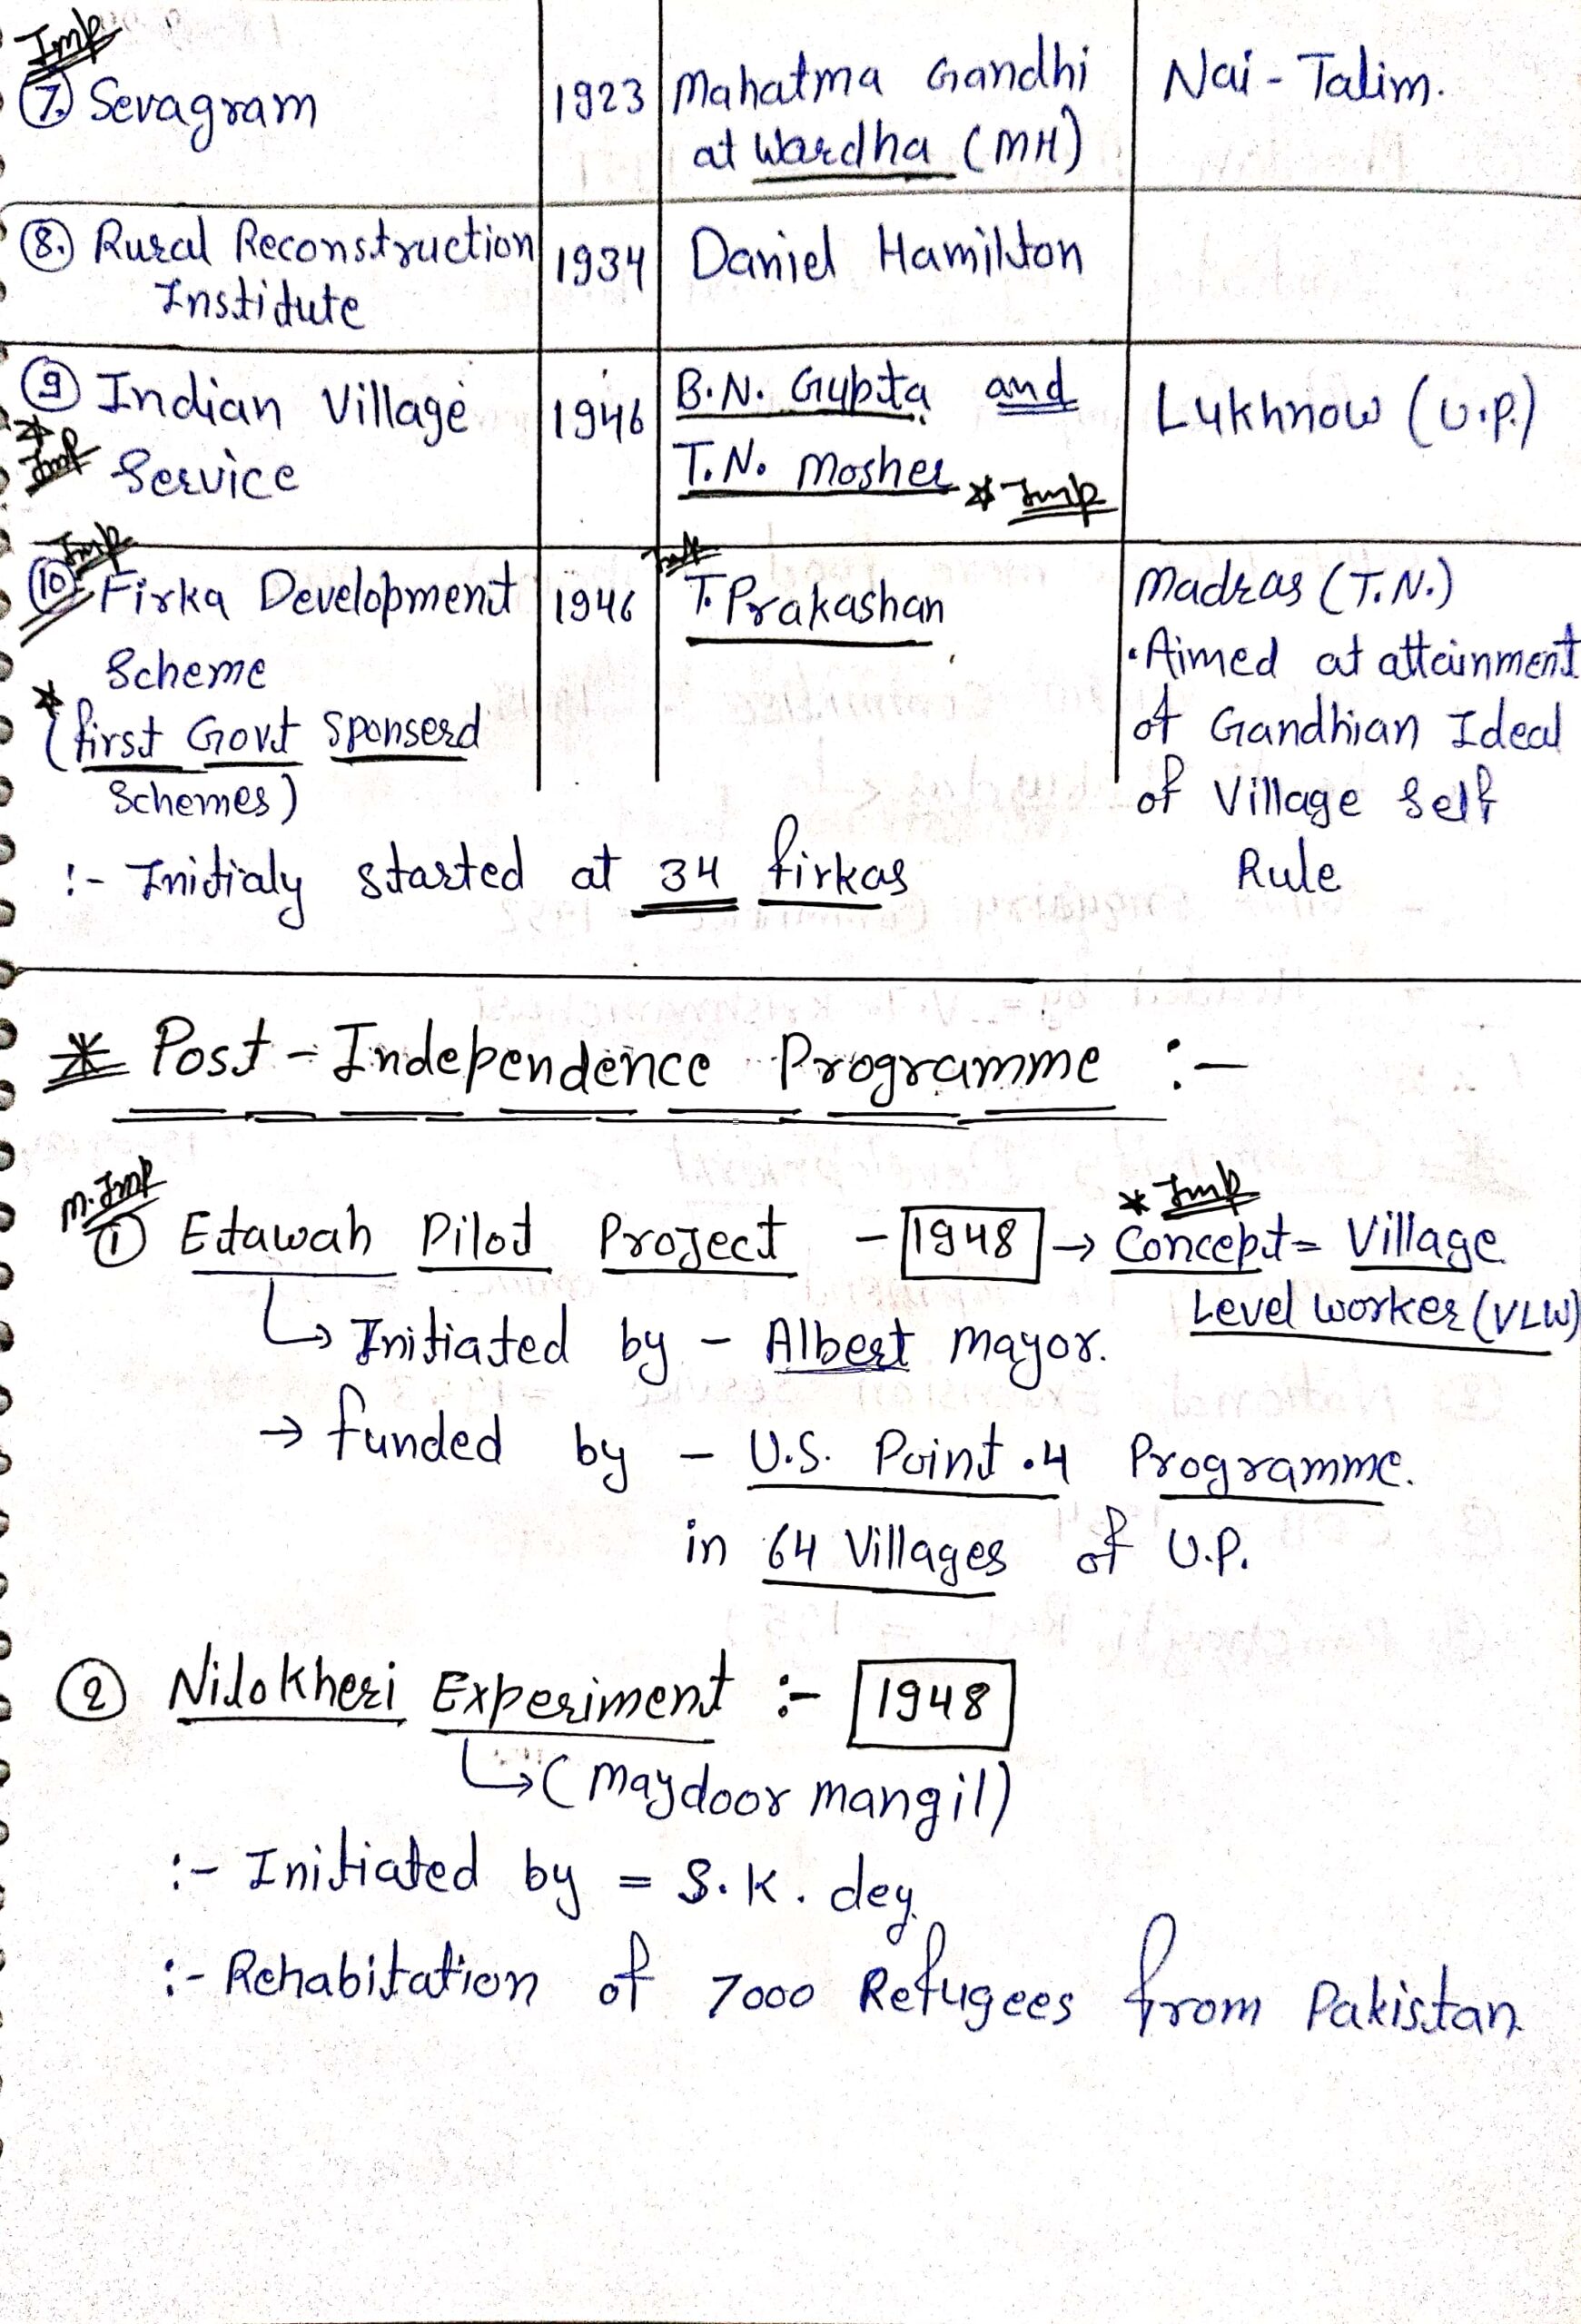 Imp
7. Sevagram | 1923 | Mahatma Gandhi | Nai - Talim.
at Wardha (MH)
8. Rural Reconstruction | 1934 | Daniel Hamilton
Institute
9 Indian Village | 1946 | B.N. Gupta and | Lukhnow (U.P.)
* Imp Service | T.N. Mosher * Imp
Imp Imp
10 Firka Development | 1946 | T. Prakashan | Madras (T.N.)
Scheme | • Aimed at attainment
* (first Govt Sponserd | of Gandhian Ideal
Schemes) | of Village Self
:- Initialy started at 34 firkas | Rule
* Post - Independence Programme :-
M. Imp * Imp
1 Etawah Pilot Project - 1948 → Concept = Village
Level worker (VLW)
↳ Initiated by - Albert Mayor.
→ funded by - U.S. Point .4 Programme.
in 64 Villages of U.P.
2 Nilokheri Experiment :- 1948
↳ (Maydoor mangil)
:- Initiated by = S.K. dey.
:- Rehabitation of 7000 Refugees from Pakistan